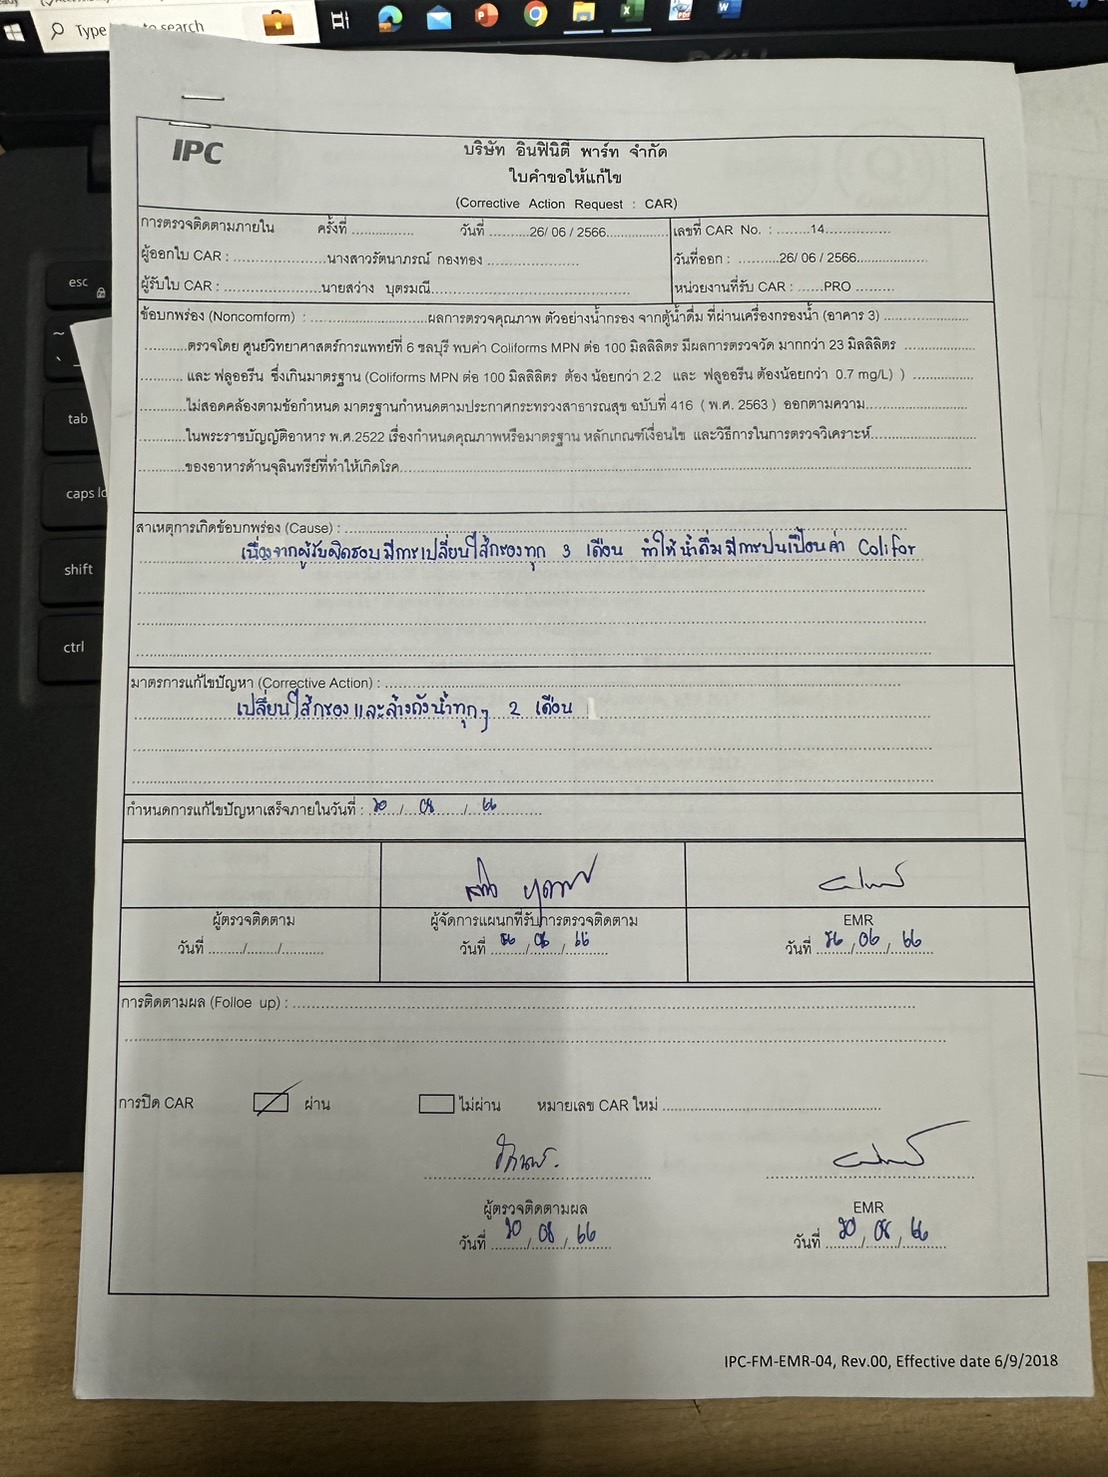 Type
to search
esc
tab
caps lo
shift
ctrl
IPC
บริษัท อินฟินิตี้ พาร์ท จำกัด
ใบคำขอให้แก้ไข
(Corrective Action Request : CAR)
การตรวจติดตามภายใน ครั้งที่ ................ วันที่ ..........26/ 06 / 2566................
เลขที่ CAR No. : ........14................
ผู้ออกใบ CAR : ......................นางสาวรัตนาภรณ์ กองทอง ......................
วันที่ออก : ..........26/ 06 / 2566..................
ผู้รับใบ CAR : .......................นายสว่าง บุตรมณี................................................
หน่วยงานที่รับ CAR : ......PRO ..........
ข้อบกพร่อง (Noncomform) : ...........................ผลการตรวจคุณภาพ ตัวอย่างน้ำกรอง จากตู้น้ำดื่ม ที่ผ่านเครื่องกรองน้ำ (อาคาร 3) ....................
..........ตรวจโดย ศูนย์วิทยาศาสตร์การแพทย์ที่ 6 ชลบุรี พบค่า Coliforms MPN ต่อ 100 มิลลิลิตร มีผลการตรวจวัด มากกว่า 23 มิลลิลิตร
.......... และ ฟลูออรีน ซึ่งเกินมาตรฐาน (Coliforms MPN ต่อ 100 มิลลิลิตร ต้อง น้อยกว่า 2.2 และ ฟลูออรีน ต้องน้อยกว่า 0.7 mg/L) ) ..............
..........ไม่สอดคล้องตามข้อกำหนด มาตรฐานกำหนดตามประกาศกระทรวงสาธารณสุข ฉบับที่ 416 ( พ.ศ. 2563 ) ออกตามความ......................
..........ในพระราชบัญญัติอาหาร พ.ศ.2522 เรื่องกำหนดคุณภาพหรือมาตรฐาน หลักเกณฑ์เงื่อนไข และวิธีการในการตรวจวิเคราะห์......................
..........ของอาหารด้านจุลินทรีย์ที่ทำให้เกิดโรค................................
สาเหตุการเกิดข้อบกพร่อง (Cause) : ................................
เนื่องจากผู้รับผิดชอบ มีการเปลี่ยนไส้กรองทุก 3 เดือน ทำให้น้ำดื่มมีการปนเปื้อนค่า Colifor
มาตรการแก้ไขปัญหา (Corrective Action) : ................................
เปลี่ยนไส้กรอง และล้างถังน้ำทุกๆ 2 เดือน
กำหนดการแก้ไขปัญหาเสร็จภายในวันที่ : ๒๐ / ๐๘ / ๖๖
ผู้ตรวจติดตาม
ผู้จัดการแผนกที่รับการตรวจติดตาม
EMR
วันที่ ......../......./.......
วันที่ ๒๖ / ๐๖ / ๖๖
วันที่ ๒๖ / ๐๖ / ๖๖
การติดตามผล (Folloe up) : ................................
การปิด CAR
ผ่าน
ไม่ผ่าน
หมายเลข CAR ใหม่ ................................
ผู้ตรวจติดตามผล
EMR
วันที่ ๒๐ / ๐๘ / ๖๖
วันที่ ๒๐ / ๐๘ / ๖๖
IPC-FM-EMR-04, Rev.00, Effective date 6/9/2018